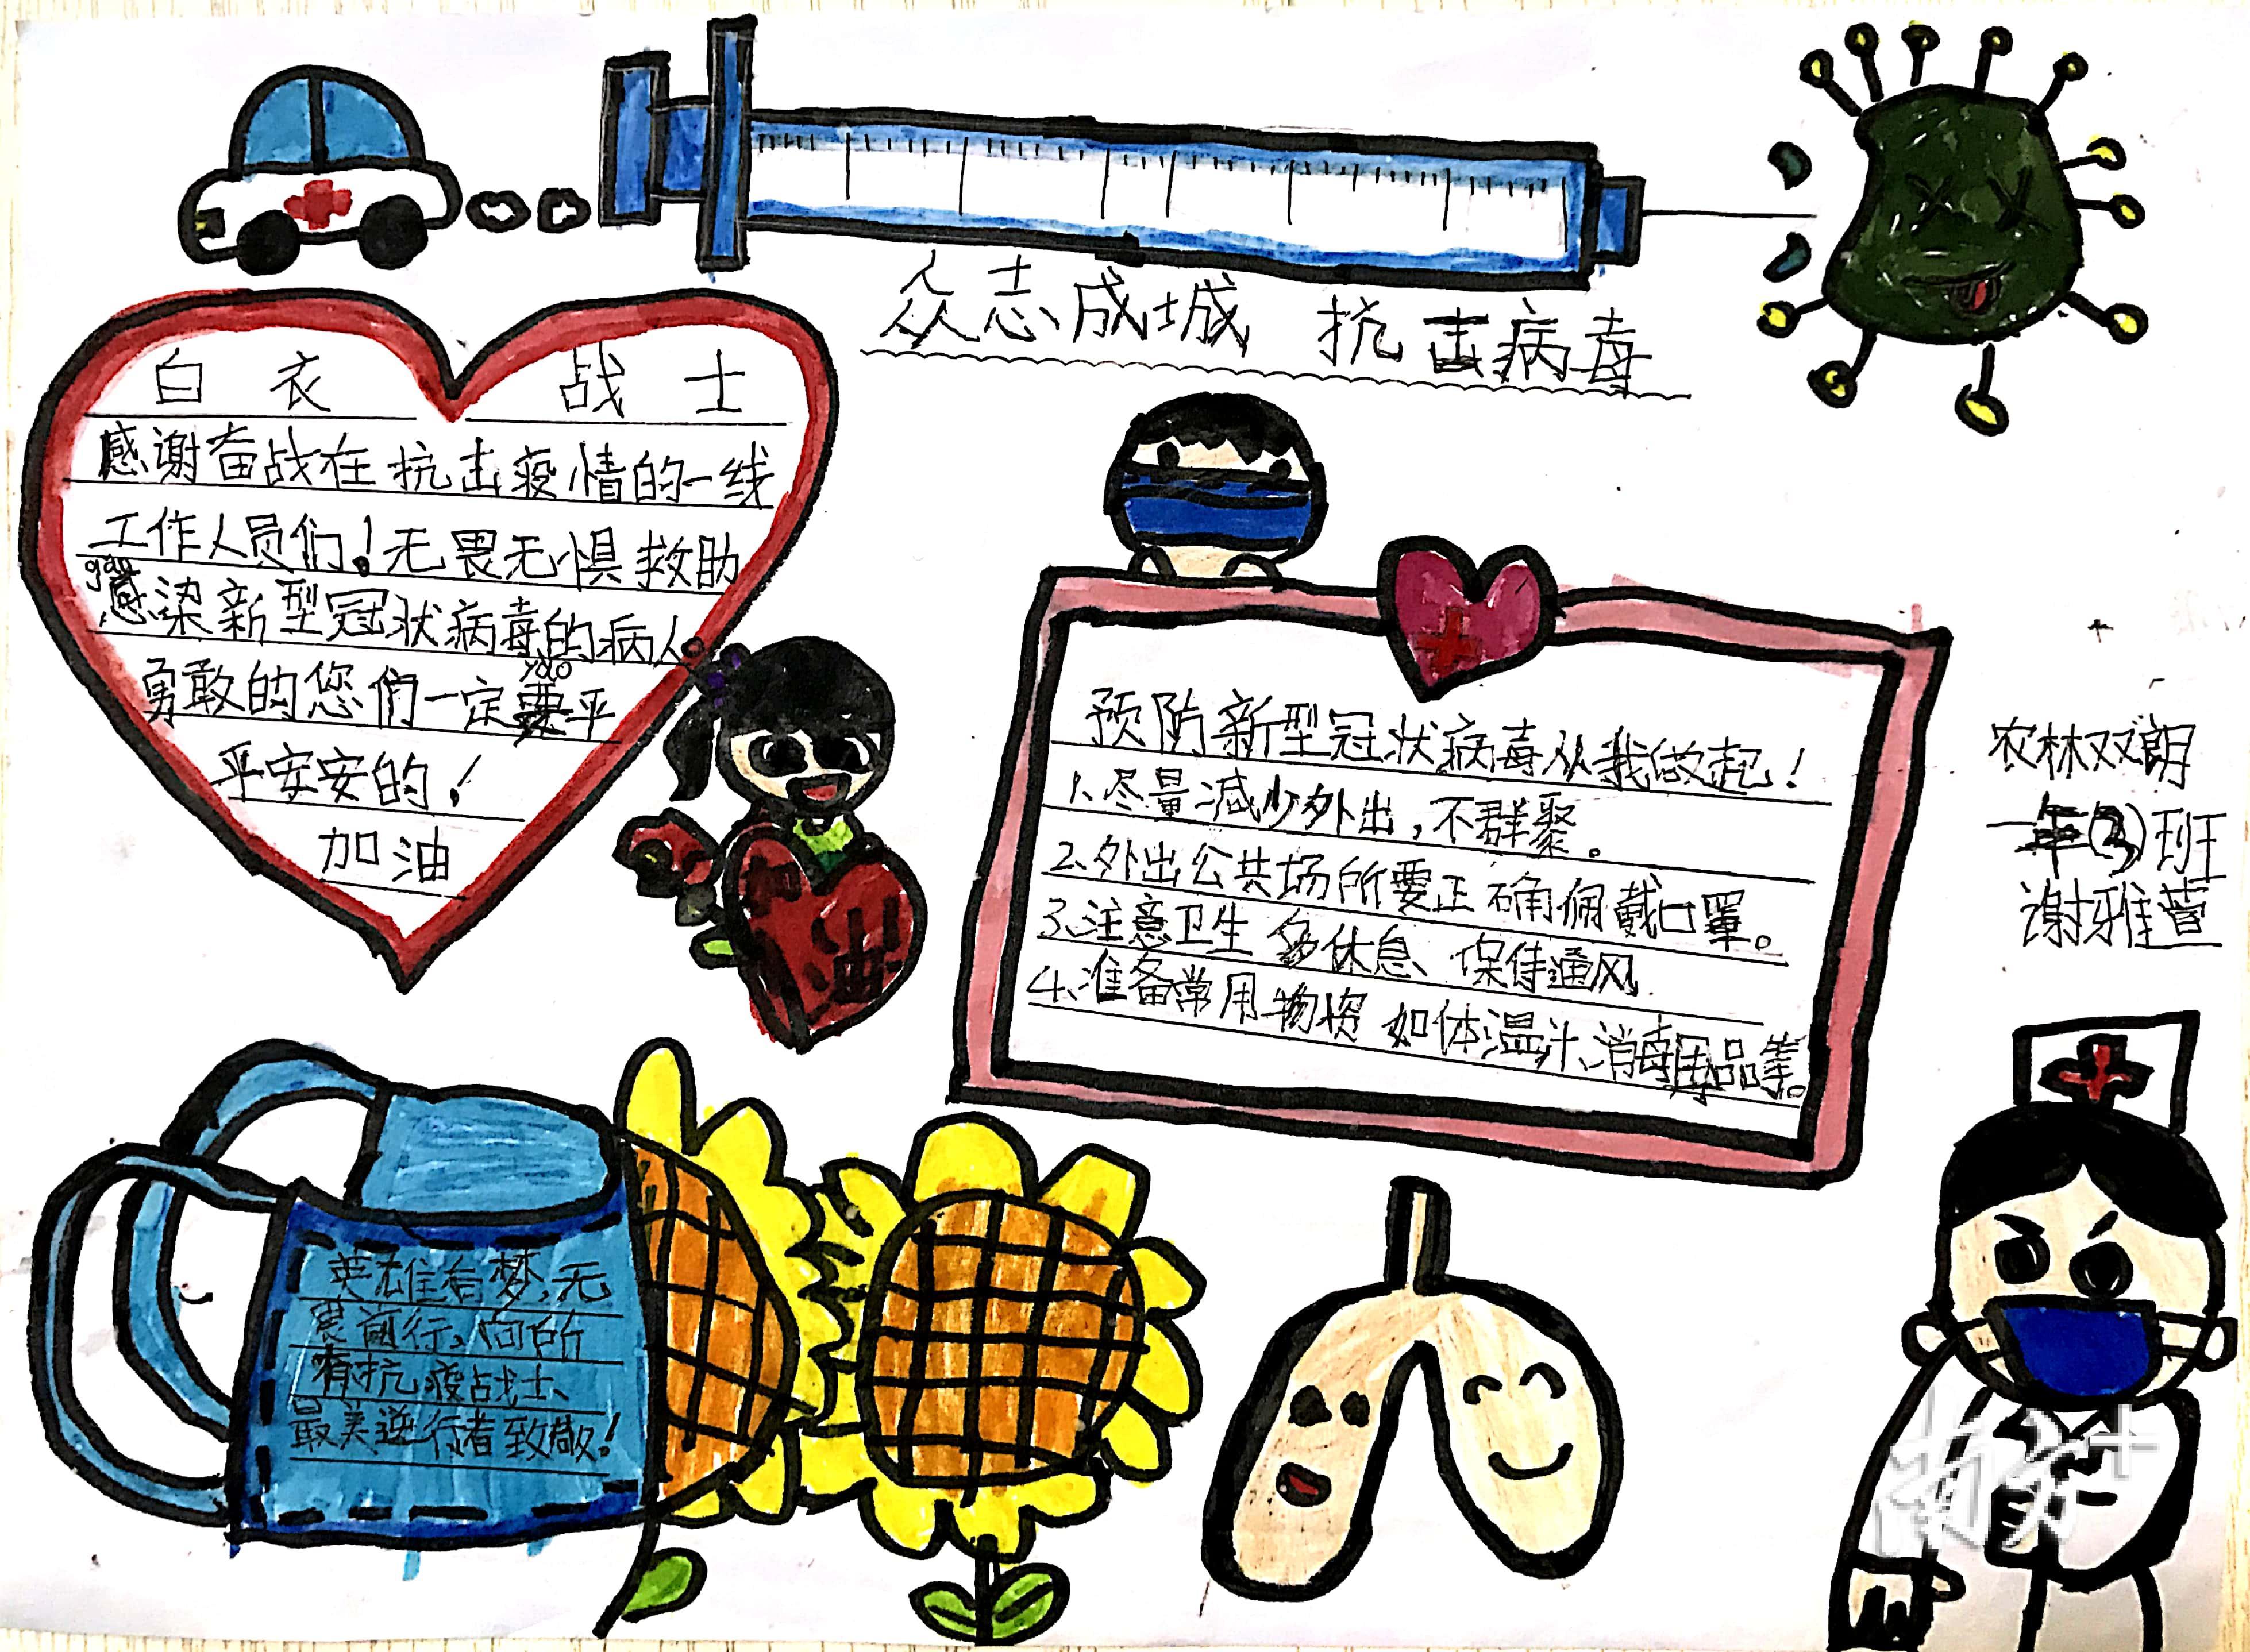 众志成城 抗击病毒
白衣 战士
感谢奋战在抗击疫情的一线
工作人员们！无畏无惧救助
gǎn
感染新型冠状病毒的病人。
yào
勇敢的您们一定要平
平安安的！
加油
加油
预防新型冠状病毒从我做起！
1.尽量减少外出，不群聚。
2.外出公共场所要正确佩戴口罩。
3、注意卫生 多休息、保侍通风
4、准备常用物资 如体温汁、消毒用品等。
农林双朗
一年(3)班
谢雅萱
英雄有梦，无
畏前行，向所
有抗疫战士、
最美逆行者致敬！
南方+